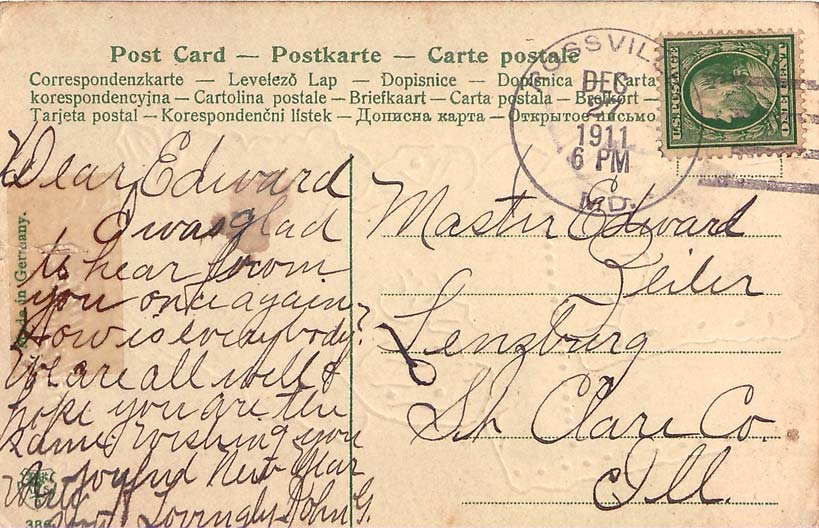 Post Card — Postkarte — Carte postale
Correspondenzkarte — Levelező Lap — Dopisnice — Dopisnica — Karta
korespondencyjna — Cartolina postale — Briefkaart — Carta postala — Brefkort —
Tarjeta postal — Korespondenční lístek — Дописна карта — Открытое письмо
ROSSVILLE
DEC
1911
6 PM
MD.
U.S. POSTAGE
ONE CENT
Made in Germany.
Dear Edward
I was glad
to hear from
you once again
How is everybody?
We are all well &
hope you are the
same wishing you
A joyful New Year
Lovingly John G.
Master Edward
Zeiler
Lenzburg
St Clare Co.
Ill.